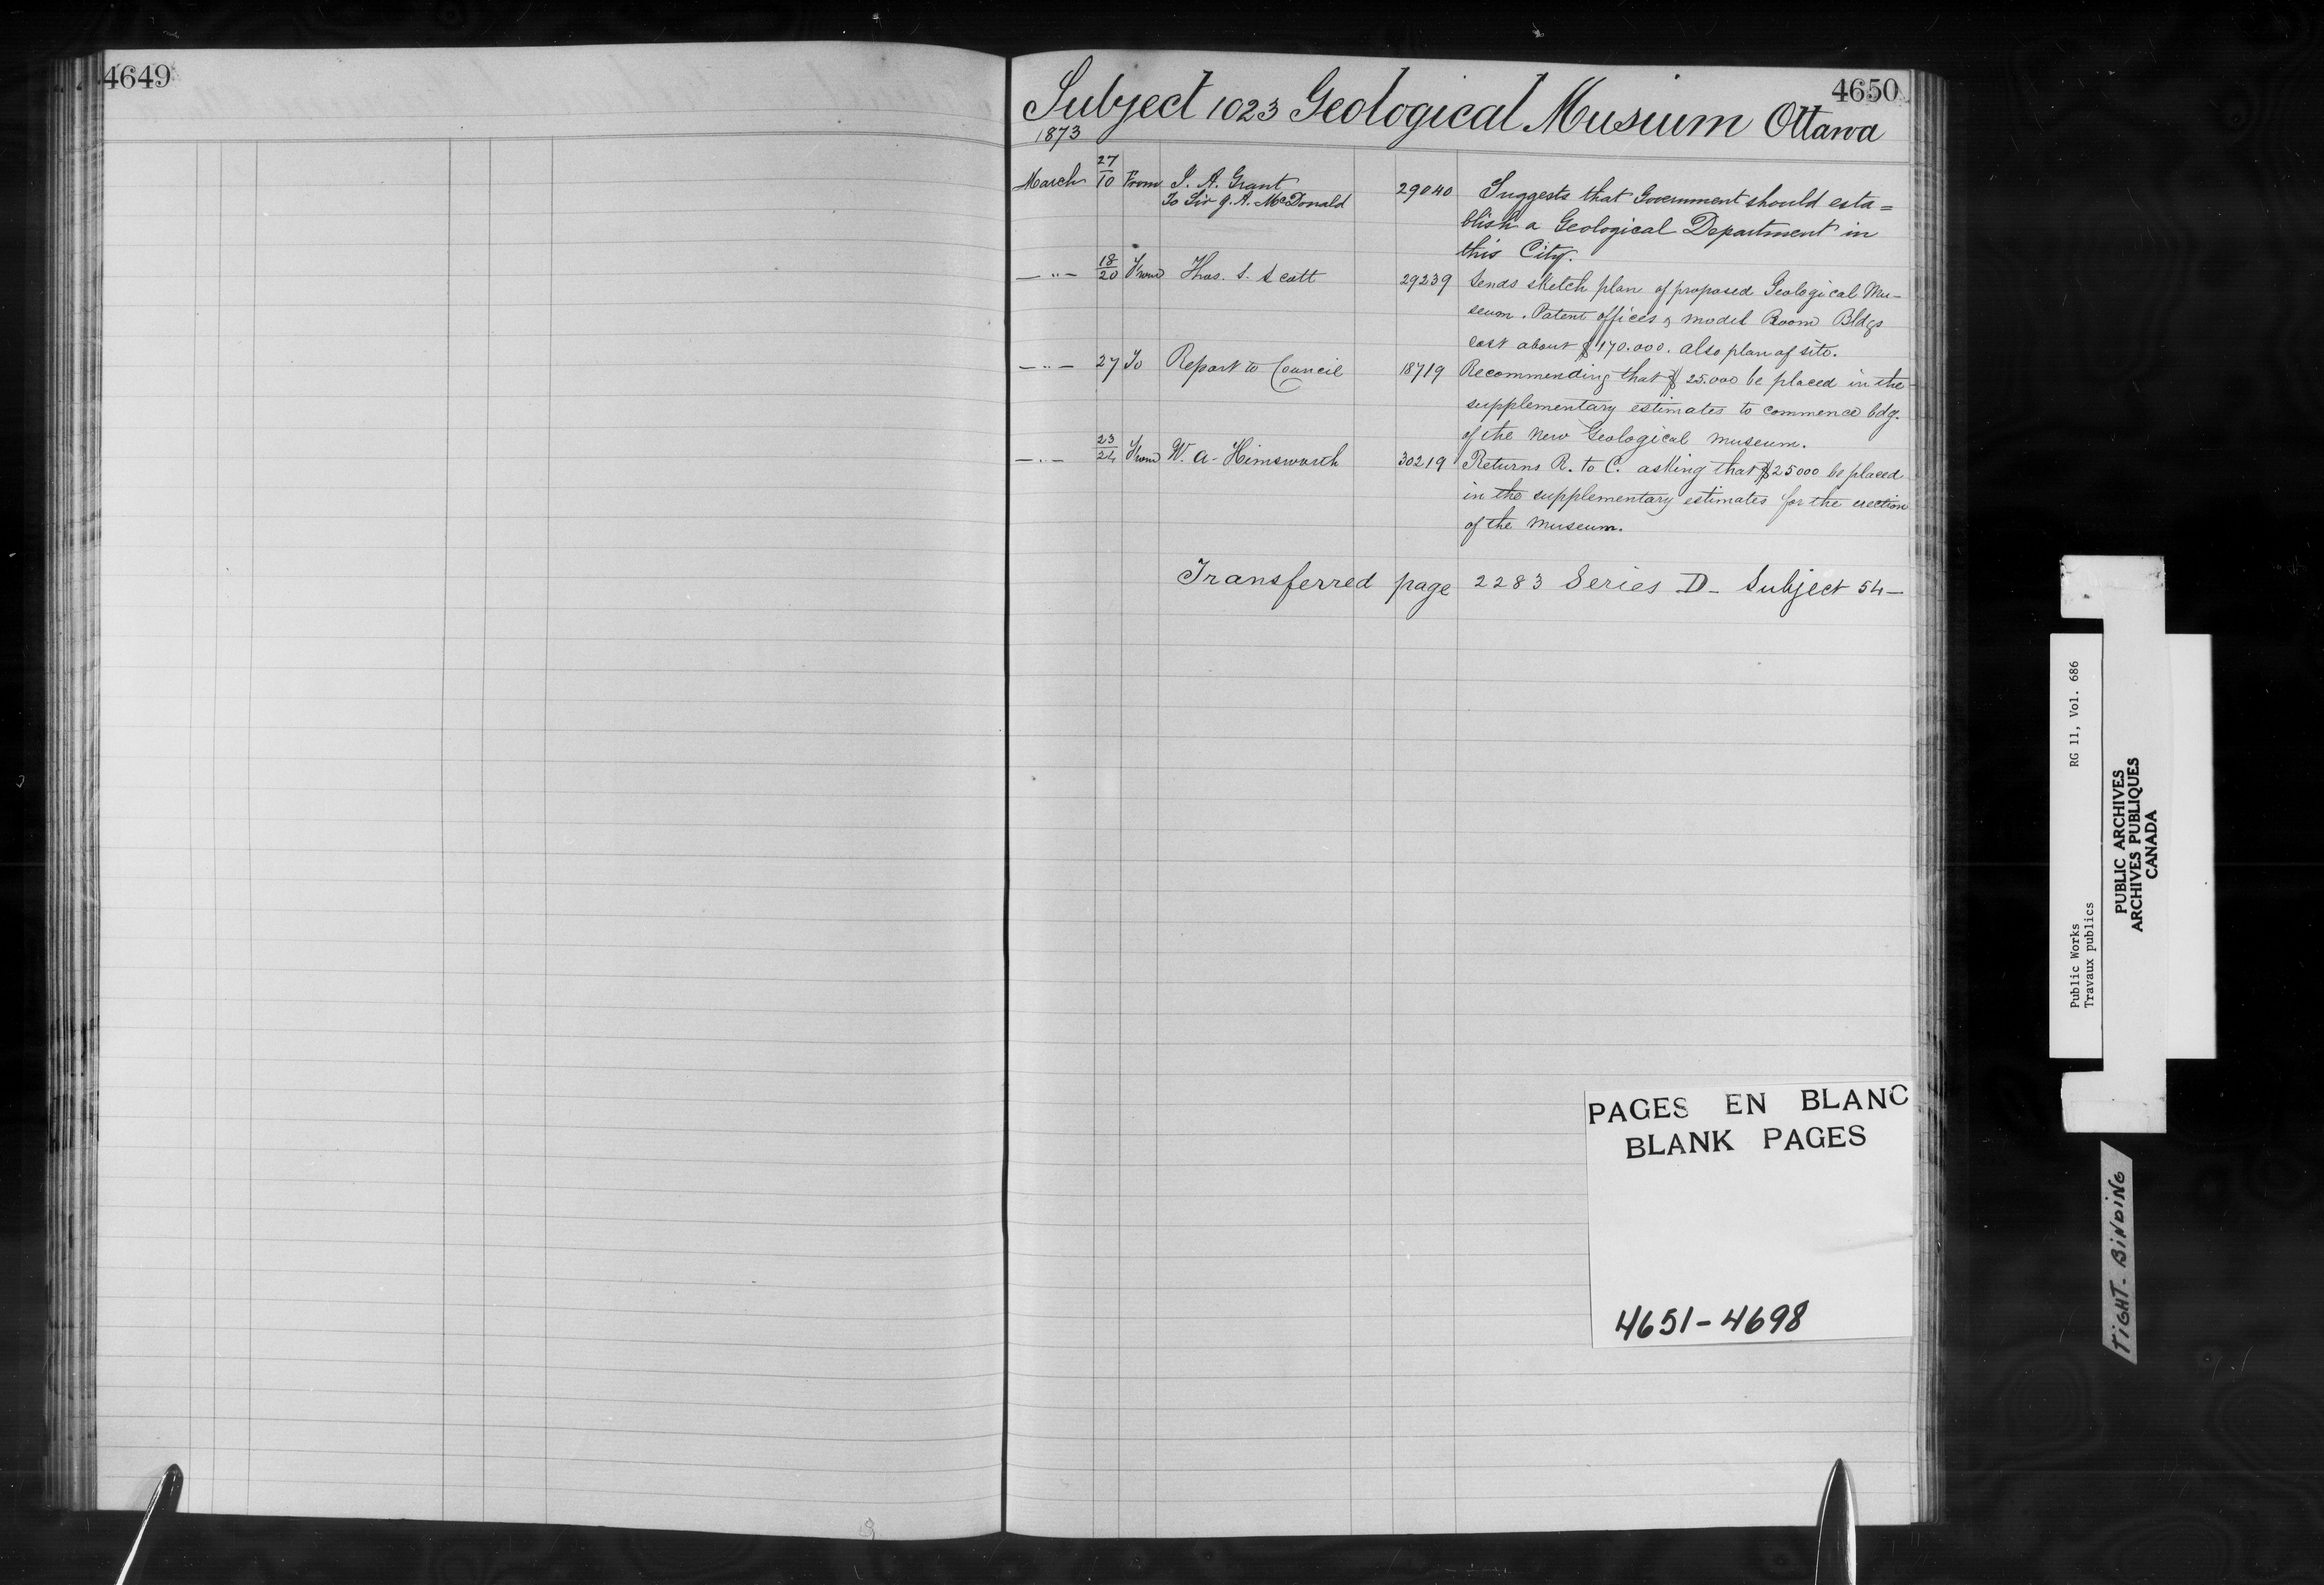 4649
4650
Subject 1023 Geological Musium Ottawa
1873
March 27/10 From J. A. Grant 29040 Suggests that Government should esta=
To Sir J. A. McDonald
blish a Geological Department in
this City.
—"— 18/20 From Thos. S. Scott 29239 Sends sketch plan of proposed Geological Mu-
seum. Patent offices & model Room Bldgs
cost about $170.000. also plan of site.
—"— 27 To Report to Council 18719 Recommending that $25.000 be placed in the
supplementary estimates to commence bdg.
of the New Geological museum.
—"— 23/24 From W. A. Himsworth 30219 Returns R. to C. asking that $25000 be placed
in the supplementary estimates for the erection
of the Museum.
Transferred page 2283 Series D - Subject 54 —
PAGES EN BLANC
BLANK PAGES
4651-4698
Public Works RG 11, Vol. 686
Travaux publics
PUBLIC ARCHIVES
ARCHIVES PUBLIQUES
CANADA
TIGHT-BINDING